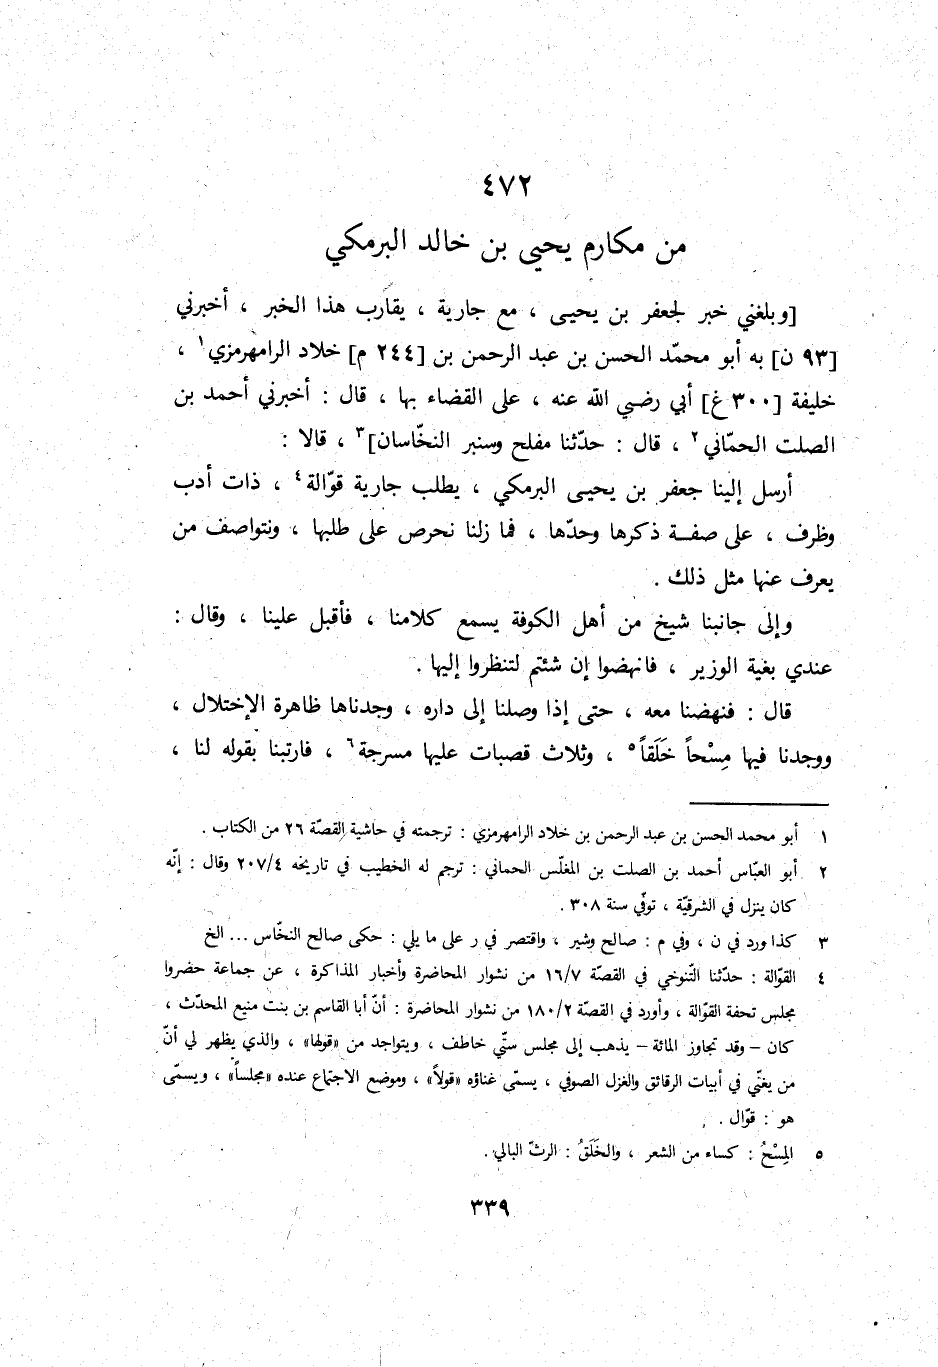 ٤٧٢
من مكارم يحيى بن خالد البرمكي
[وبلغني خبر لجعفر بن يحيـى ، مع جارية ، يقارب هذا الخبر ، أخبرني
[٩٣ ن] به أبو محمّد الحسن بن عبد الرحمن بن [٢٤٤ م] خلاد الرامهرمزي١ ،
خليفة [٣٠٠ غ] أبي رضـي الله عنه ، على القضاء بها ، قال : أخبرني أحمد بن
الصلت الحمّاني٢ ، قال : حدّثنا مفلح وسنبر النخّاسان]٣ ، قالا :
أرسل إلينا جعفر بن يحيـى البرمكي ، يطلب جارية قوّالة٤ ، ذات أدب
وظرف ، على صفـــة ذكرها وحدّها ، فما زلنا نحرص على طلبها ، ونتواصف من
يعرف عنها مثل ذلك .
وإلى جانبنا شيخ من أهل الكوفة يسمع كلامنا ، فأقبل علينا ، وقال :
عندي بغية الوزير ، فانهضوا إن شئتم لتنظروا إليها .
قال : فنهضنا معه ، حتى إذا وصلنا إلى داره ، وجدناها ظاهرة الإختلال ،
ووجدنا فيها مِسْحاً خَلَقاً٥ ، وثلاث قصبات عليها مسرجة٦ ، فارتبنا بقوله لنا ،
١ أبو محمد الحسن بن عبد الرحمن بن خلاد الرامهرمزي : ترجمته في حاشية القصّة ٢٦ من الكتاب .
٢ أبو العبّاس أحمد بن الصلت بن المغلّس الحماني : ترجم له الخطيب في تاريخه ٢٠٧/٤ وقال : إنّه
كان ينزل في الشرقيّة ، توفّي سنة ٣٠٨ .
٣ كذا ورد في ن ، وفي م : صالح وشير ، واقتصر في ر على ما يلي : حكى صالح النخّاس ... الخ
٤ القوّالة : حدّثنا التّنوخي في القصّة ١٦/٧ من نشوار المحاضرة وأخبار المذاكرة ، عن جماعة حضروا
مجلس تحفة القوّالة ، وأورد في القصّة ١٨٠/٢ من نشوار المحاضرة : أنّ أبا القاسم بن بنت منيع المحدّث ،
كان – وقد تجاوز المائة – يذهب إلى مجلس ستّي خاطف ، ويتواجد من «قولها» ، والذي يظهر لي أنّ
من يغنّي في أبيات الرقائق والغزل الصوفي ، يسمّى غناؤه «قولاً» ، وموضع الاجتماع عنده «مجلساً» ، ويسمّى
هو : قوّال .
٥ المِسْحُ : كساء من الشعر ، والخَلَقُ : الرثّ البالي .
٣٣٩